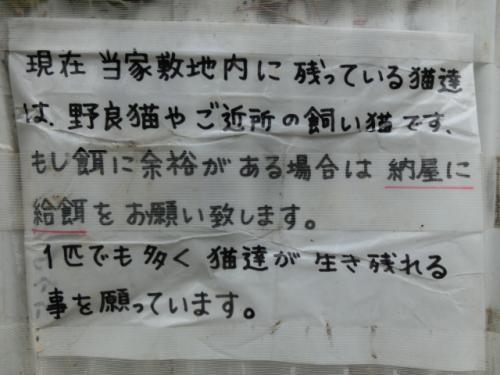 現在 当家敷地内に 残っている猫達
は、野良猫や ご近所の飼い猫です、
もし餌に余裕がある場合は 納屋に
給餌をお願い致します。
1匹でも多く 猫達が 生き残れる
事を願っています。